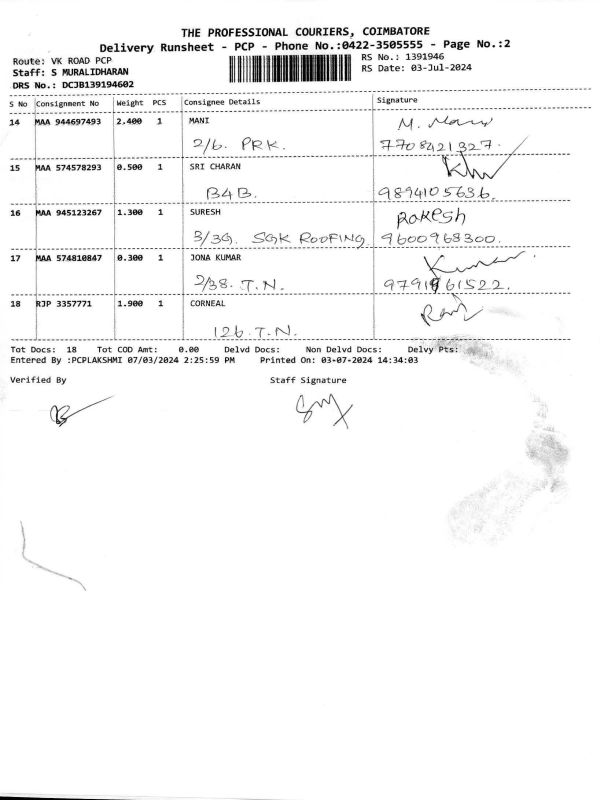 THE PROFESSIONAL COURIERS, COIMBATORE
Delivery Runsheet - PCP - Phone No.:0422-3505555 - Page No.:2
Route: VK ROAD PCP RS No.: 1391946
Staff: S MURALIDHARAN RS Date: 03-Jul-2024
DRS No.: DCJB139194602
S No Consignment No Weight PCS Consignee Details Signature
14 MAA 944697493 2.400 1 MANI M. Mani
2/6. PRK. 7708421327.
15 MAA 574578293 0.500 1 SRI CHARAN
B4B. 9894105636.
16 MAA 945123267 1.300 1 SURESH Rakesh
3/3G. SGK ROOFING 9600968300.
17 MAA 574810847 0.300 1 JONA KUMAR Kumar
2/38. T.N.
18 RJP 3357771 1.900 1 CORNEAL
126.T.N.
Tot Docs: 18 Tot COD Amt: 0.00 Delvd Docs: Non Delvd Docs: Delvy Pts:
Entered By :PCPLAKSHMI 07/03/2024 2:25:59 PM Printed On: 03-07-2024 14:34:03
Verified By Staff Signature